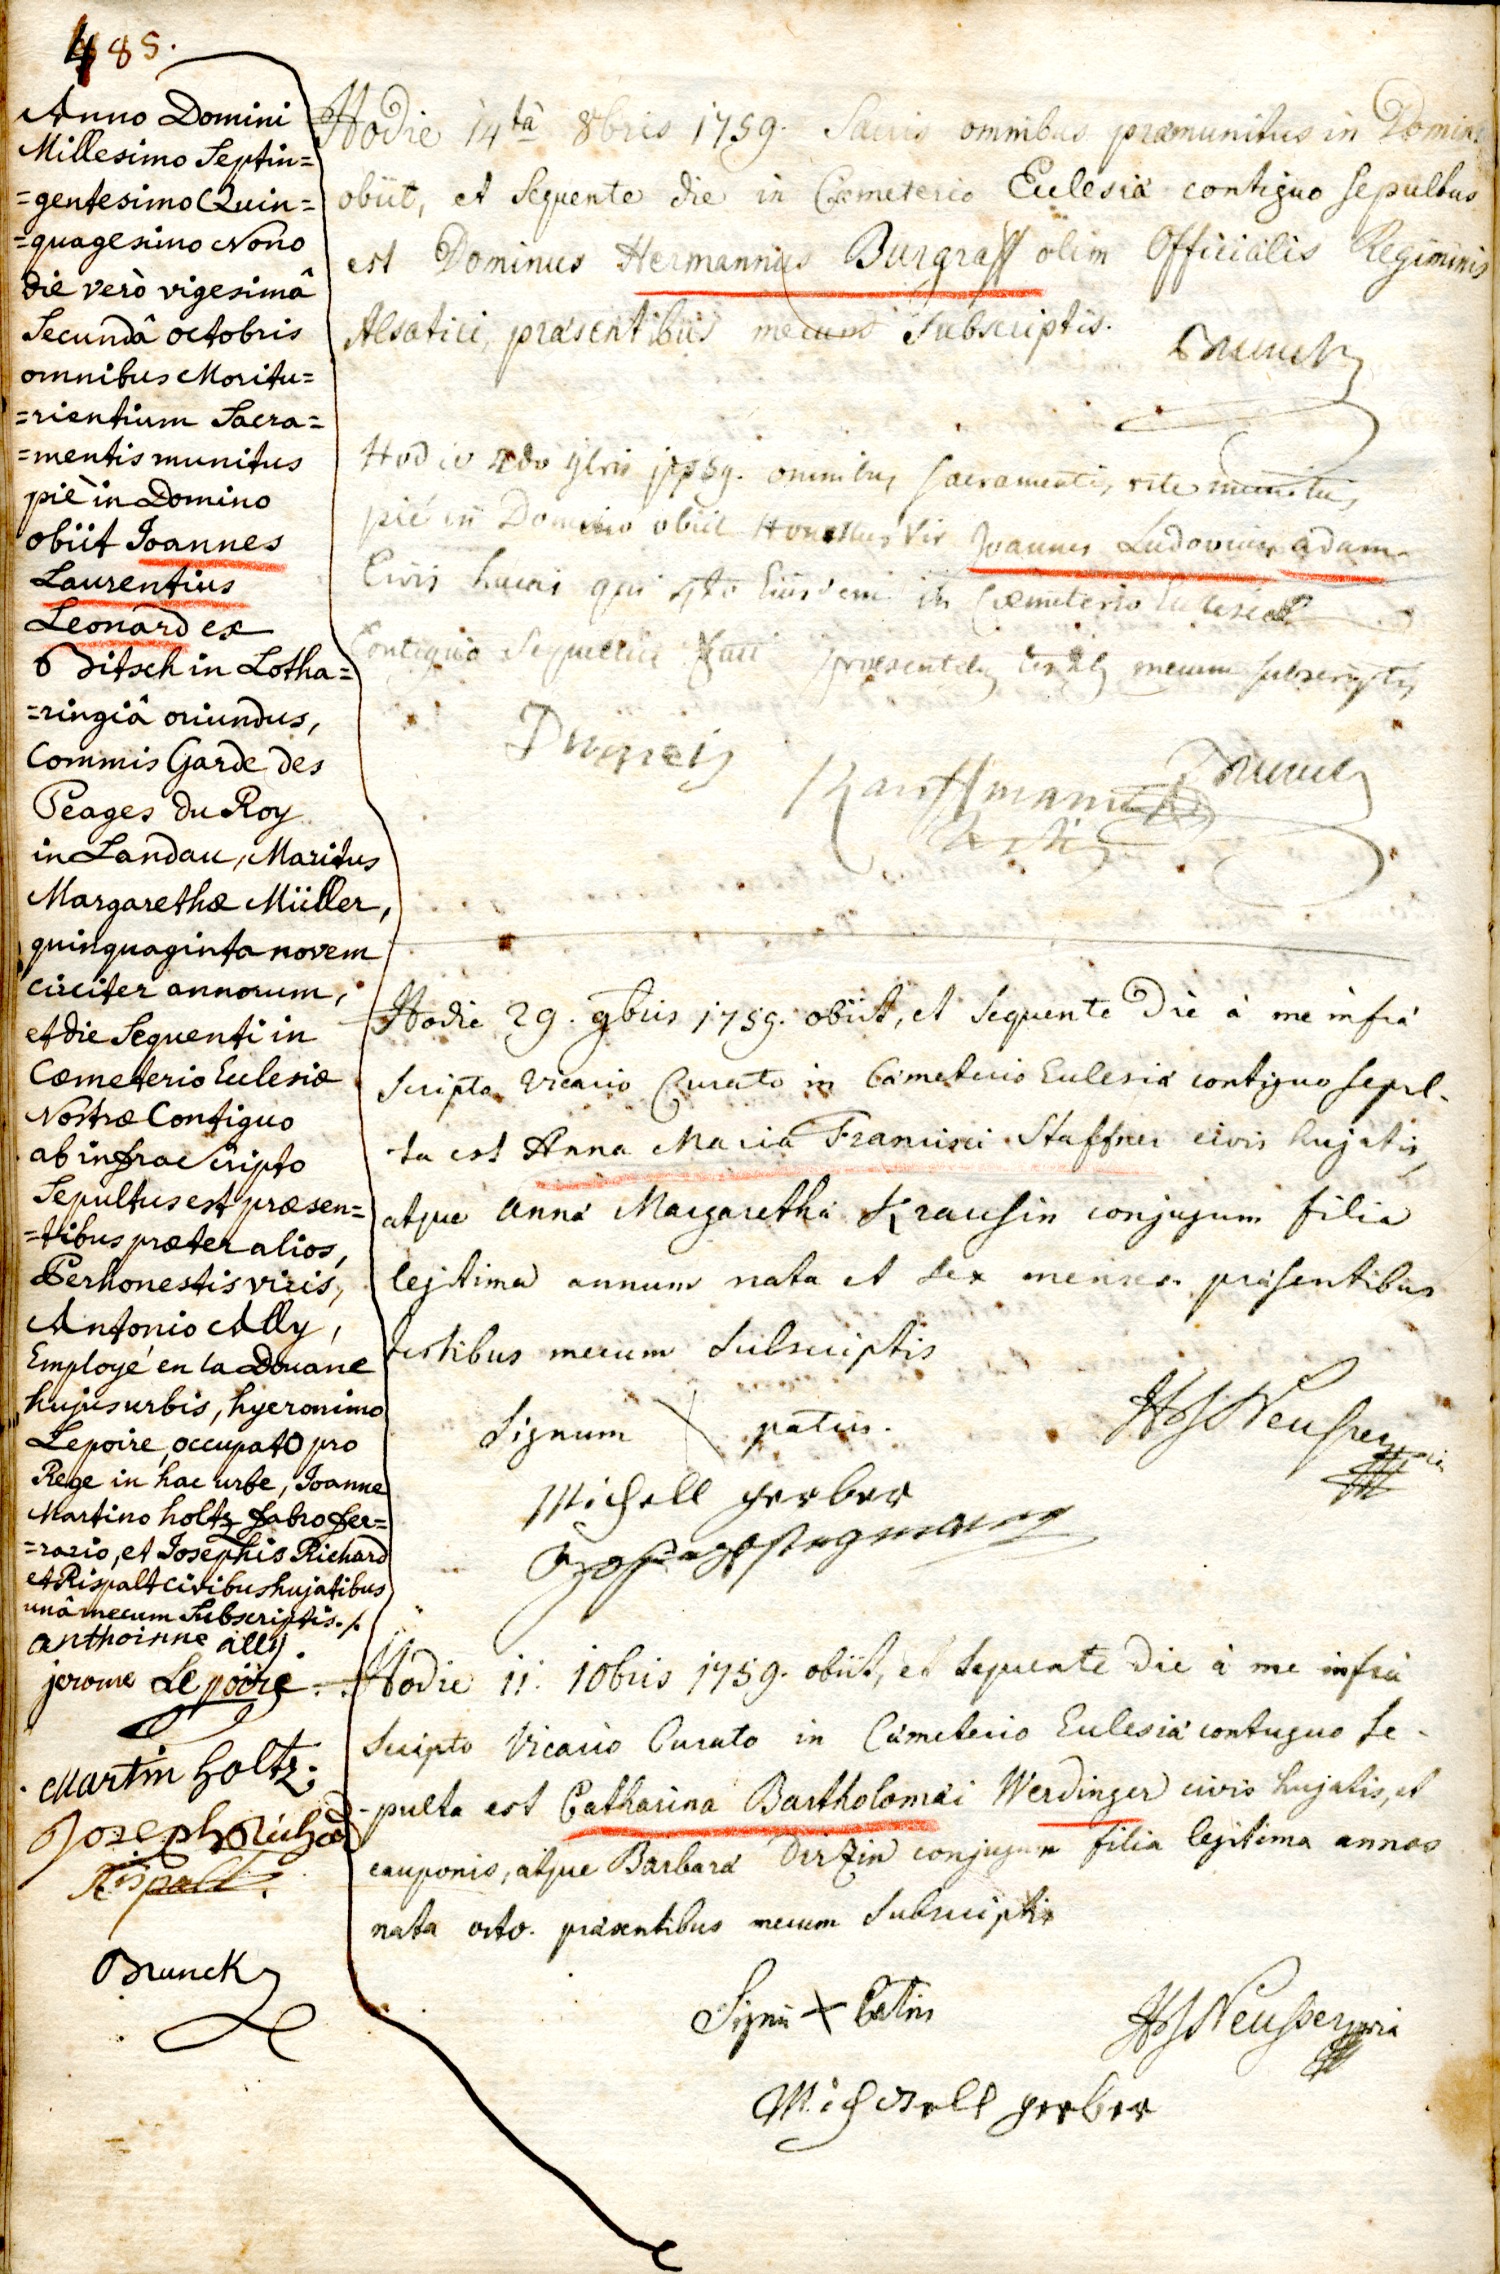 485.
Anno Domini
Millesimo Septin=
=gentesimo Quin=
=quagesimo Nono
die verò vigesimâ
Secundâ octobris
omnibus Moritu=
=rientium Sacra=
=mentis munitus
piè in Domino
obiit Joannes
Laurentius
Leonard ex
Bitsch in Lotha=
=ringiâ oriundus,
Commis Garde des
Peages du Roy
in Landau, Maritus
Margarethæ Müller,
quinquaginta novem
circiter annorum,
et die Sequenti in
Cœmeterio Ecclesiæ
Nostræ Contiguo
ab infra Scripto
Sepultus est præsen=
=tibus præter alios,
Perhonestis viris,
Antonio Ally,
Employé en la Douane
hujus urbis, hyeronimo
Lepoire, occupato pro
Rege in hac urbe, Joanne
Martino holtz fabro fer=
=rario, et Josephis Richard
et Rispalt civibus hujatibus
unâ mecum Subscriptis./.
anthoinne ally
jerome Le poire
Martin holtz
Joseph Richard
Rispalt
Brunck
Hodie 14tâ 8bris 1759. Sacris omnibus præmunitus in Domino
obiit, et Sequente die in Cæmeterio Ecclesiæ contiguo sepultus
est Dominus Hermannus Burgraff olim Officialis Regiminis
Alsatici, præsentibus mecum Subscriptis.
Brunck
Hodie 9bris 1759. omnibus sacramentis rite munitus
pié in Domino obiit Honestus Vir Joannes Ludovicus adam
Civis hujas qui 4to Ejusdem in Cœmeterio Ecclesiæ
Contiguo præsentibus testibus mecum subscriptis
Kauffmann
Brunck
Hodie 29. 9bris 1759. obiit, et Sequente Die à me infrà
Scripto Vicario Curato in Cæmeterio Ecclesiæ contiguo sepul-
-ta est Anna Maria Francisci Staffner civis hujatis,
atque Annæ Margarethæ Krausin conjugum filia
lejitima annum nata et sex menses. præsentibus
testibus mecum Subscriptis
Signum X patris.
Michell gerber
Hodie 11. 10bris 1759. obiit, et Sequente Die à me infrà
Scripto Vicario Curato in Cæmeterio Ecclesiæ contuguo Se-
-pulta est Catharina Bartholomæi Werdinger civis hujatis, et
cauponis, atque Barbaræ Dirzin conjugum filia lejitima annos
nata octo. præsentibus mecum Subscriptis
Signū X Patris
Michaell gerber